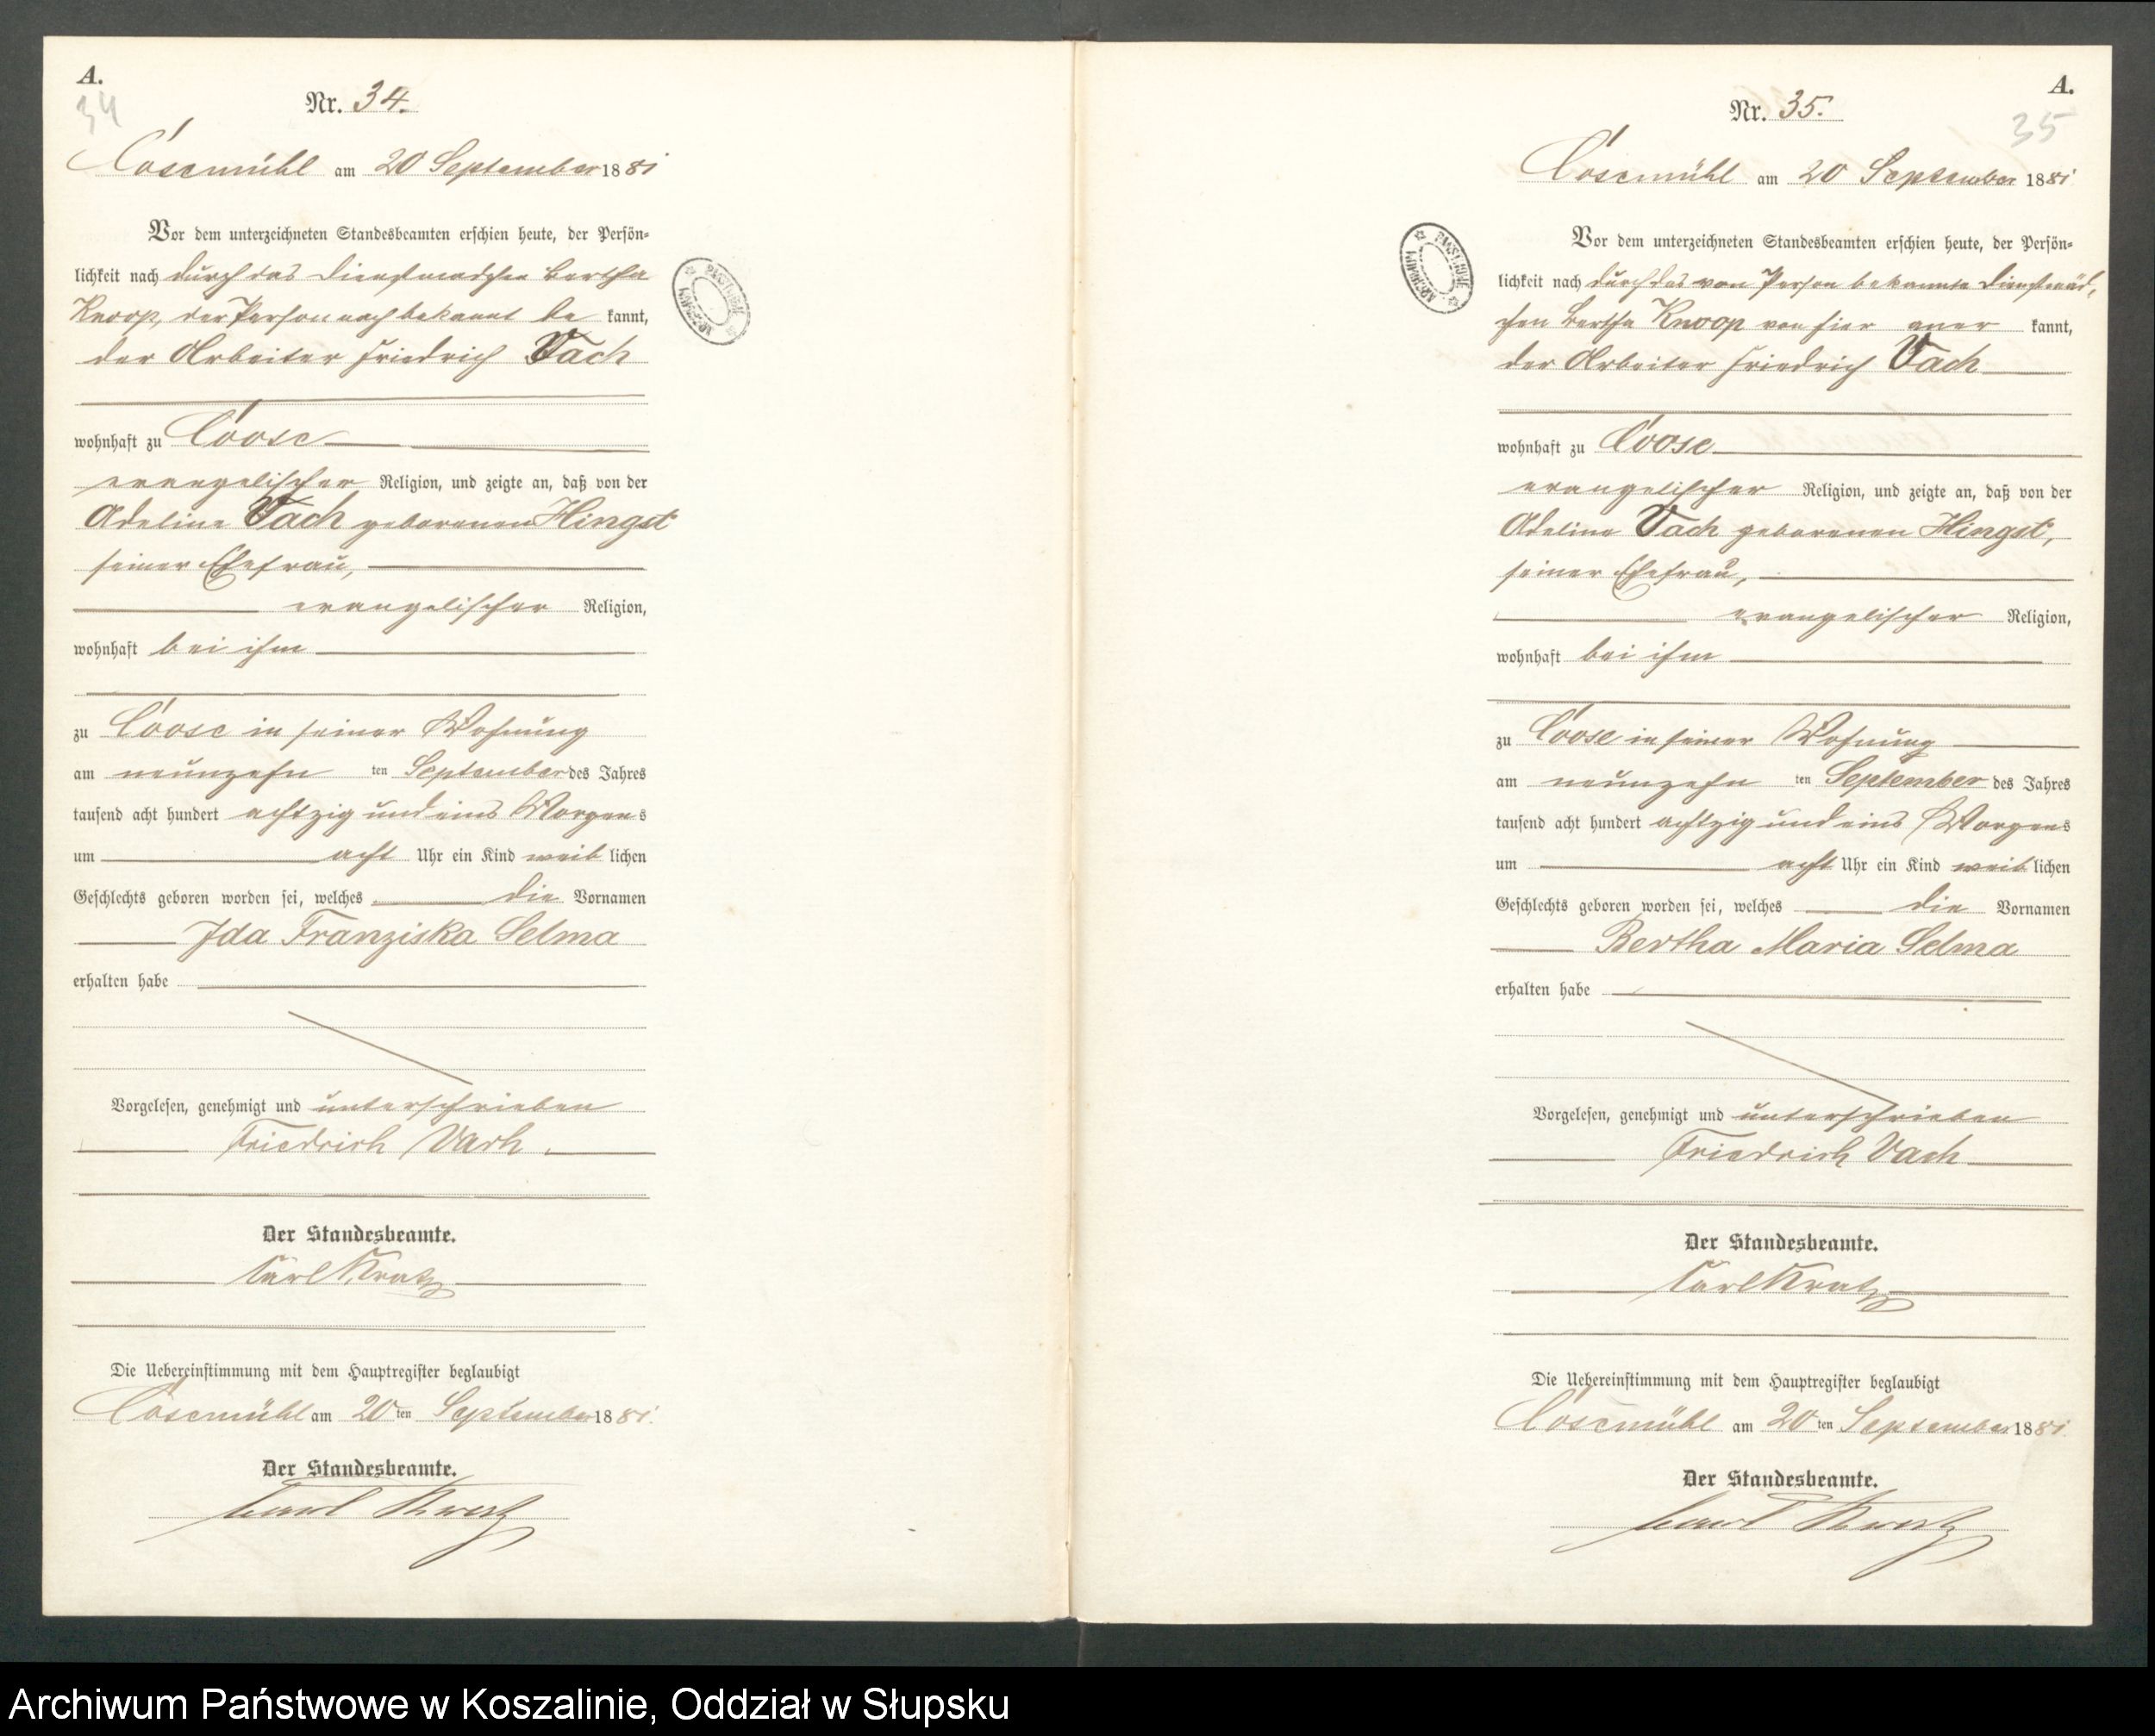 A.
34
Nr. 34.
Coosemühl am 20 September 1881
Vor dem unterzeichneten Standesbeamten erschien heute, der Persön-
lichkeit nach durch das Dienstmädchen Bertha
Knoop, der Person nach bekannt be kannt,
der Arbeiter Friedrich Vach
wohnhaft zu Coose
evangelischer Religion, und zeigte an, daß von der
Adeline Vach geborenen Hingst
seiner Ehefrau,
evangelischer Religion,
wohnhaft bei ihm
zu Coose in seiner Wohnung
am neunzehn ten September des Jahres
tausend acht hundert achtzig und eins Morgens
um acht Uhr ein Kind weib lichen
Geschlechts geboren worden sei, welches die Vornamen
Ida Franziska Selma
erhalten habe
Vorgelesen, genehmigt und unterschrieben
Friedrich Vach.
Der Standesbeamte.
Carl Kratz
Die Uebereinstimmung mit dem Hauptregister beglaubigt
Coosemühl am 20 ten September 1881.
Der Standesbeamte.
Carl Kratz
A.
35
Nr. 35.
Coosemühl am 20 September 1881
Vor dem unterzeichneten Standesbeamten erschien heute, der Persön-
lichkeit nach durch das von Person bekannte Dienstmäd,
chen Bertha Knoop von hier aner kannt,
der Arbeiter Friedrich Vach
wohnhaft zu Coose
evangelischer Religion, und zeigte an, daß von der
Adeline Vach geborenen Hingst,
seiner Ehefrau,
evangelischer Religion,
wohnhaft bei ihm
zu Coose in seiner Wohnung
am neunzehn ten September des Jahres
tausend acht hundert achtzig und eins Morgens
um acht Uhr ein Kind weib lichen
Geschlechts geboren worden sei, welches die Vornamen
Bertha Maria Selma
erhalten habe
Vorgelesen, genehmigt und unterschrieben
Friedrich Vach
Der Standesbeamte.
Carl Kratz
Die Uebereinstimmung mit dem Hauptregister beglaubigt
Coosemühl am 20 ten September 1881.
Der Standesbeamte.
Carl Kratz
Archiwum Państwowe w Koszalinie, Oddział w Słupsku